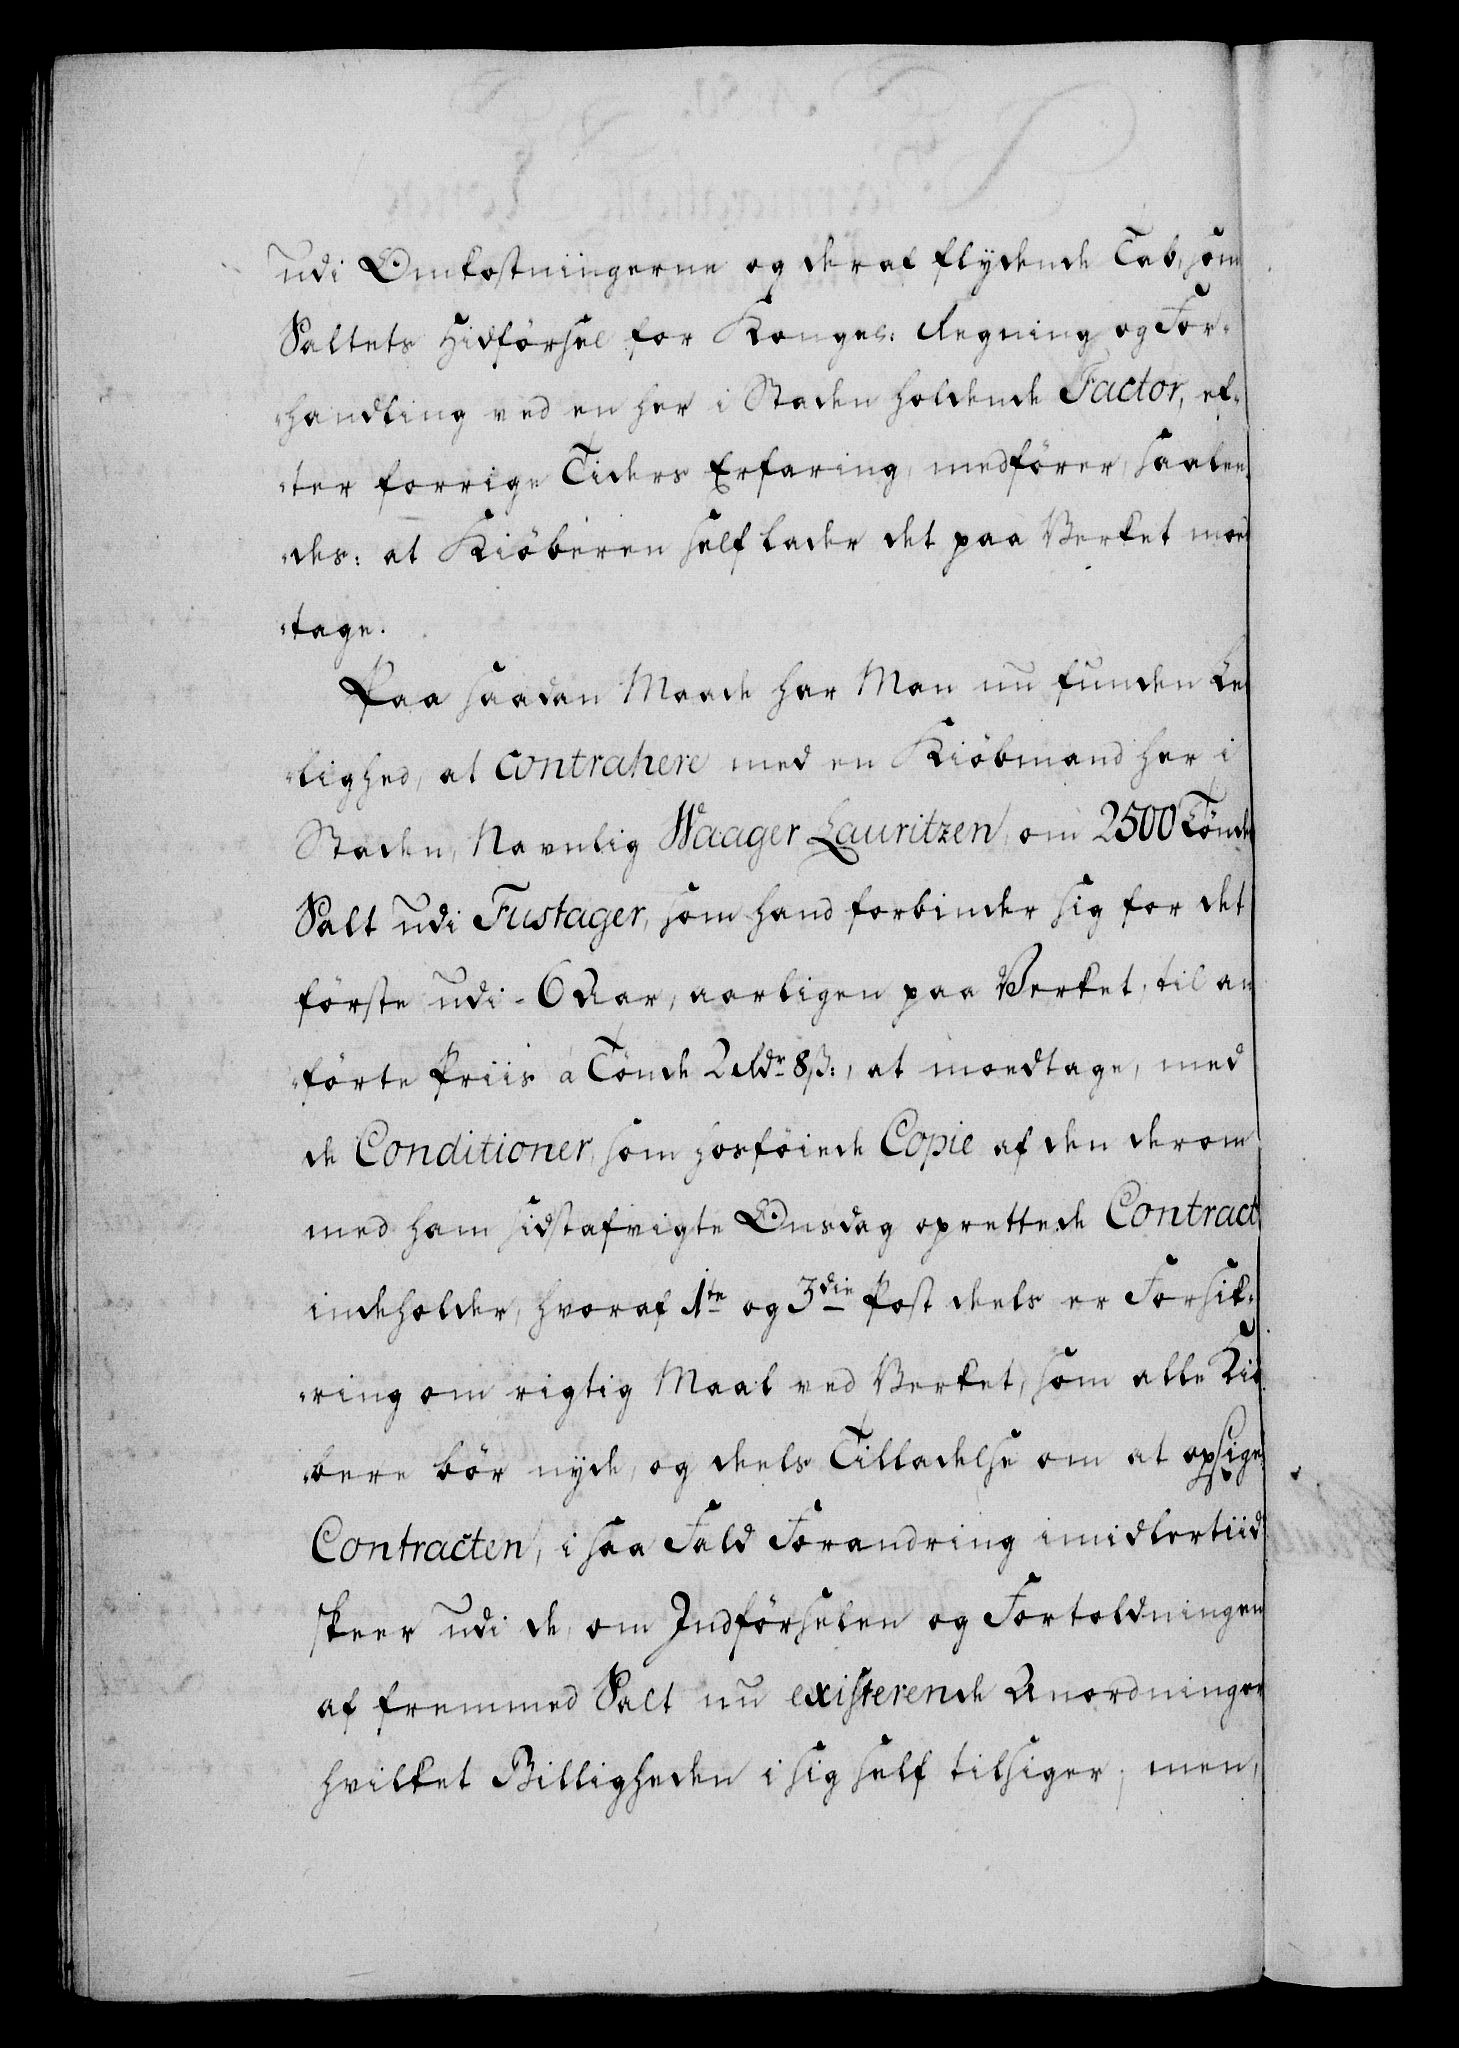 udi Omkostningerne og deraf flydende Tab, som
Saltets Hidförsel for Kongel: Regning og For-
-handling ved en her i Staden holdende Factor, ef-
-ter forrige Tiders Erfaring, medförer, saalee
-des: at Kiöberen self lader det paa Verket mod
-tage.
Paa saadan Maade har Man nu funden Lei
-lighed, at contrahere med en Kiöbmand her i
Staden, Navnlig Waager Lauritzen, om 2500 Tönder
Salt udi Fustager, som hand forbinder sig for det
förste udi 6 Aar, aarligen paa Verket, til an
-förte Priis a Tönde 2 Rdr 8 ß:, at modtage, med
de Conditioner, som hosföiede Copie af den derom
med ham sidstafvigte Onsdag oprettede Contract
indeholder, hvoraf 1te og 3die Post deels er Forsik-
-ring om rigtig Maal ved Verket, som alle Kiö
-bere bör nyde, og deels Tilladelse om at opsige
Contracten, i saa Fald Forandring imidlertiid
skeer udi de, om Indförselen og Fortoldningen
af fremmed Salt nu existerende Anordninger
hvilket Billigheden i sig self tilsiger, men,